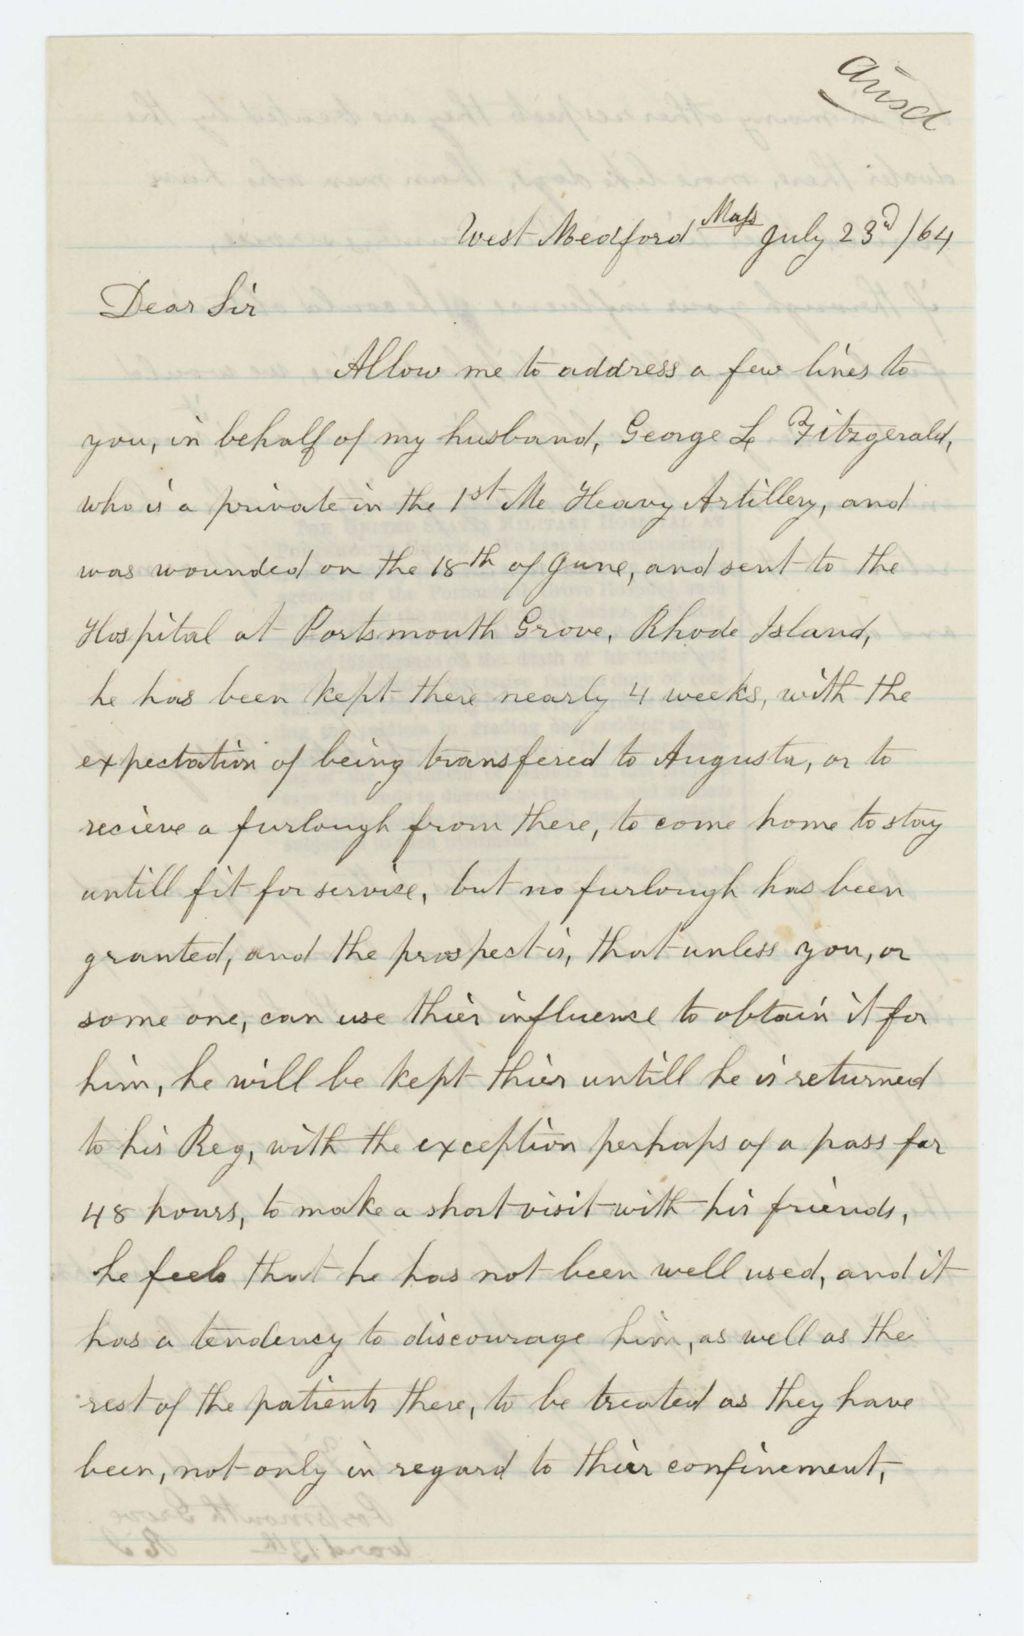 Ansd
West Medford Mass July 23d /64
Dear Sir
Allow me to address a few lines to
you, in behalf of my husband, George L Fitzgerald,
who is a private in the 1st Me Heavy Artillery, and
was wounded on the 18th of June, and sent to the
Hospital at Portsmouth Grove, Rhode Island,
he has been kept there nearly 4 weeks, with the
expectation of being transfered to Augusta, or to
recieve a furlough from there, to come home to stay
untill fit for service, but no furlough has been
granted, and the prospect is, that unless you, or
some one, can use thier influense to obtain it for
him, he will be kept thier untill he is returned
to his Reg, with the exception perhaps of a pass for
48 hours, to make a short visit with his friends,
he feels that he has not been well used, and it
has a tendency to discourage him, as well as the
rest of the patients there, to be treated as they have
been, not only in regard to thier confinement,
Portsmouth Grove
Ward 12th R I